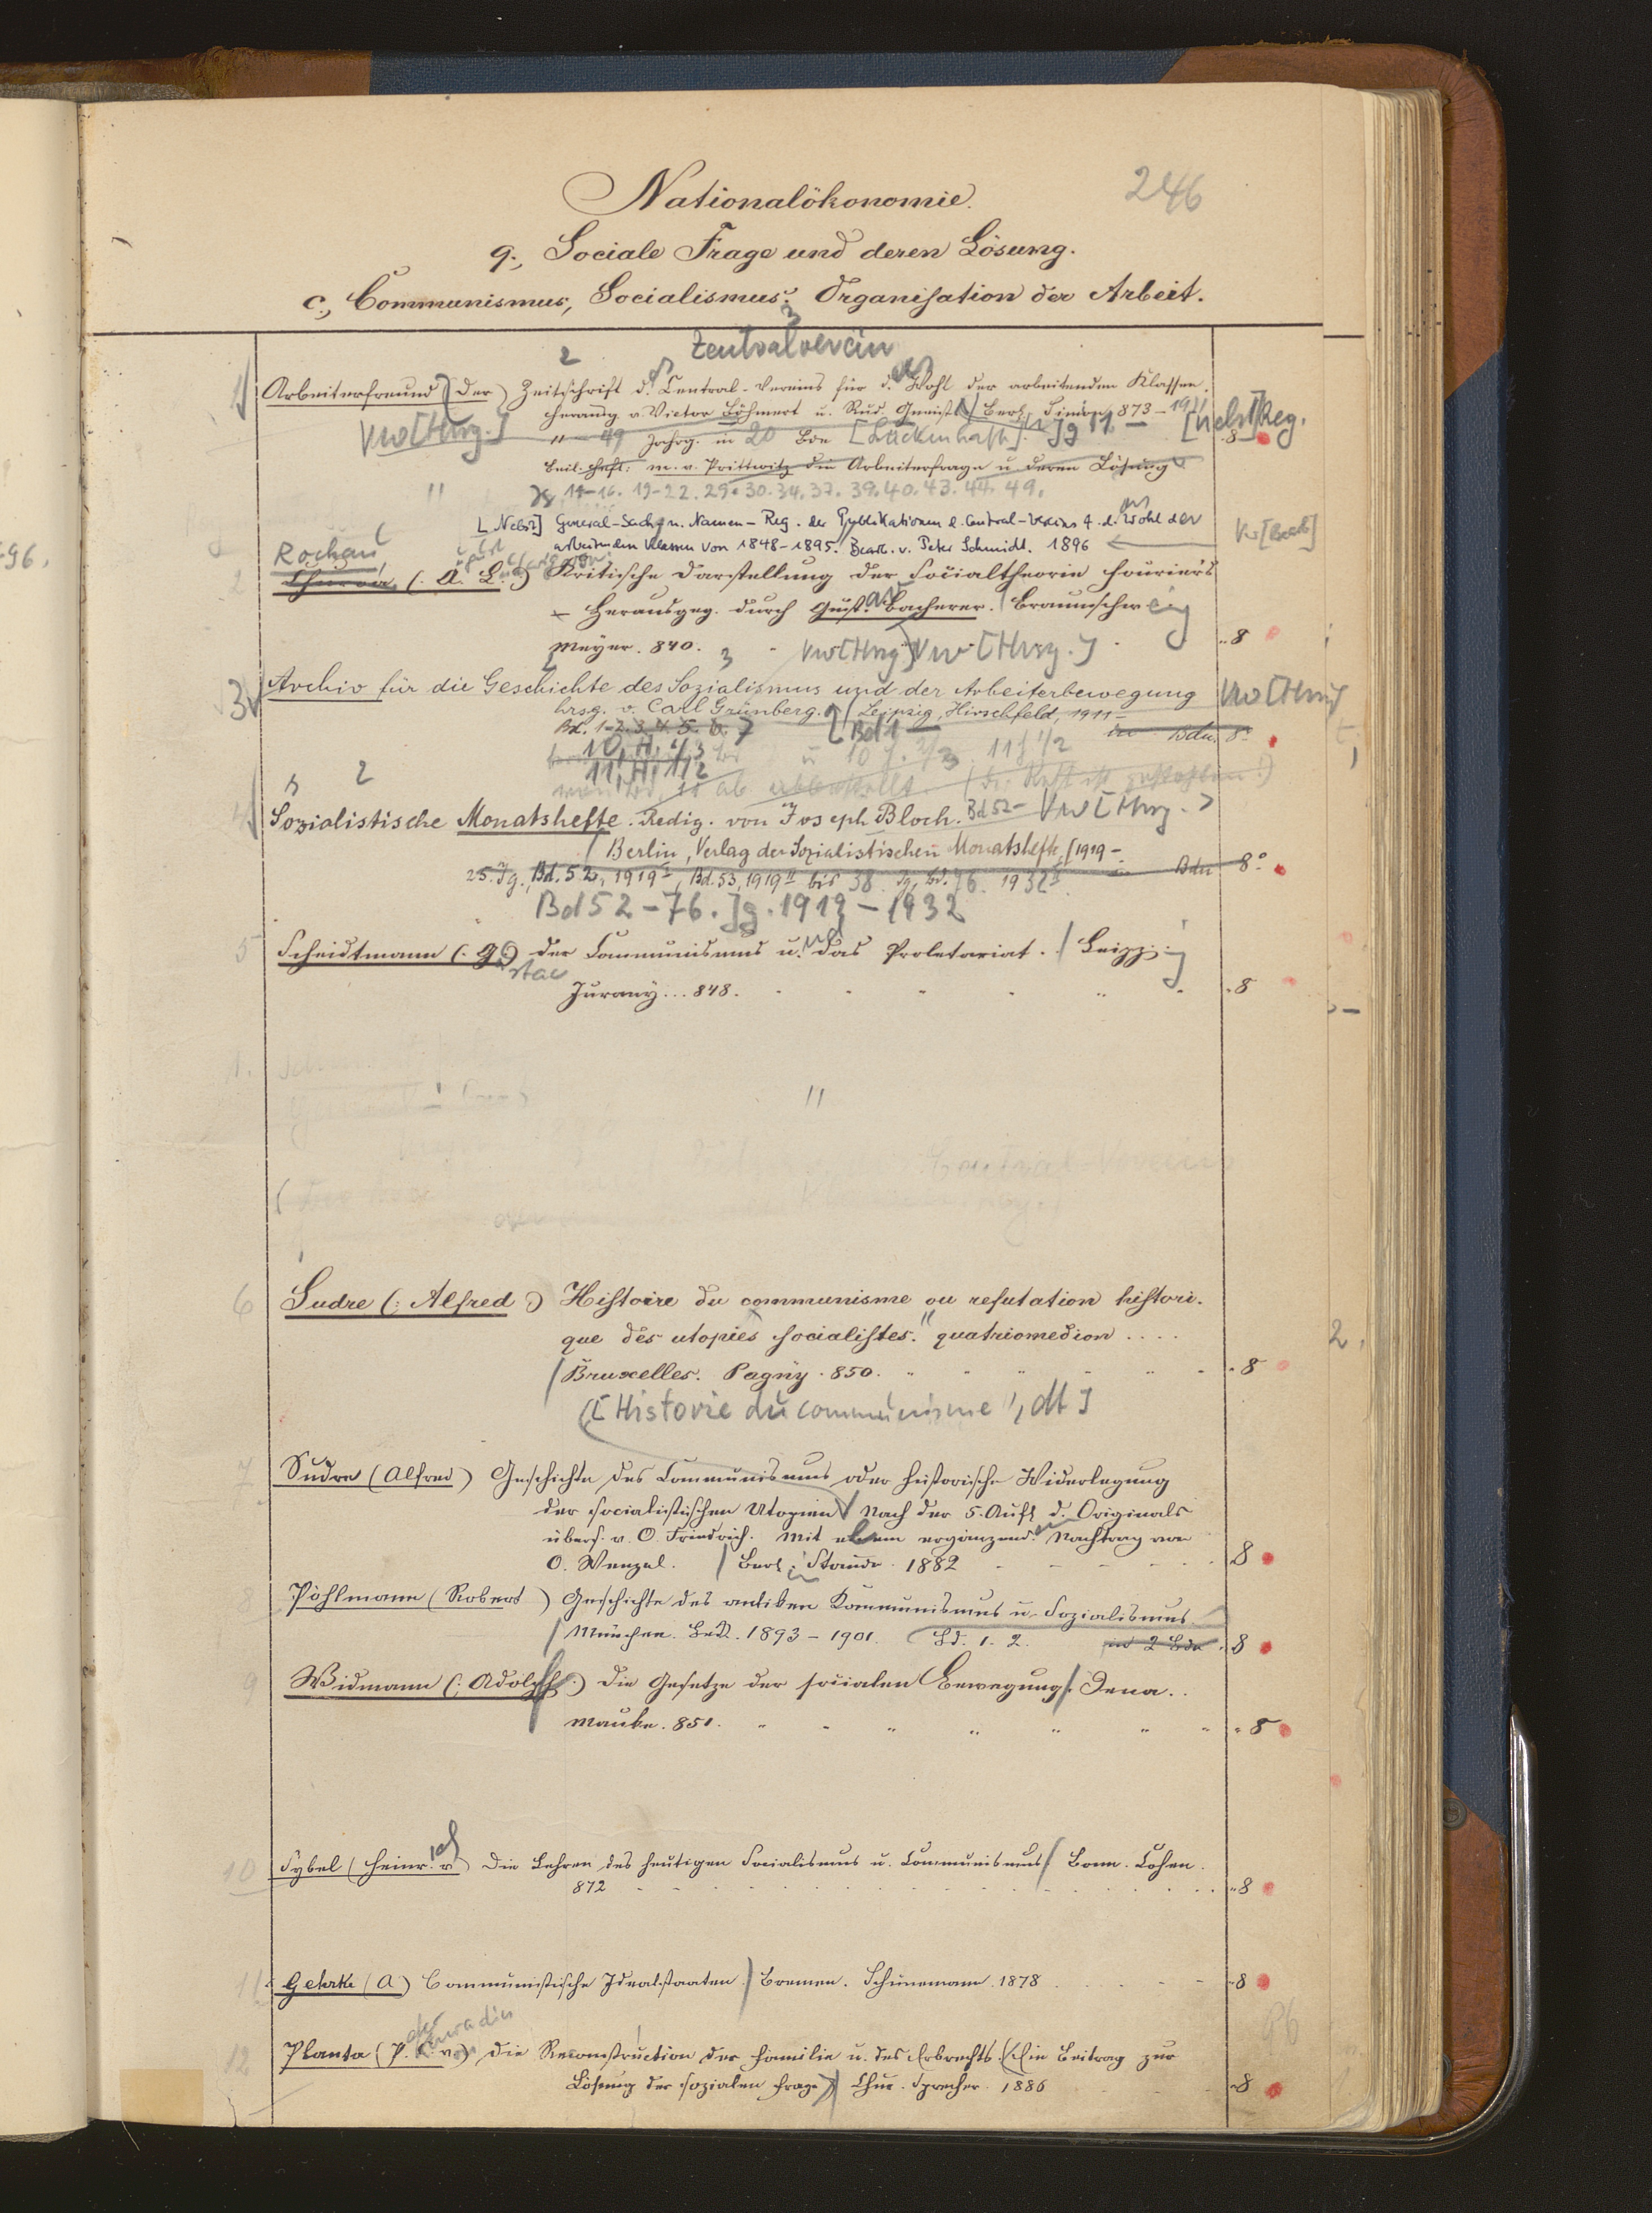 246
Nationalökonomie.
9., Sociale Frage und deren Lösung.
c., Communismus, Socialismus. Organisation der Arbeit.
Zentralverein
1 Arbeiterfreund (Der) Zeitschrift d. Central-Vereins für d. Wohl der arbeitenden Klassen.
herausg. v. Victor Böhmert u. Rud. Gneist / Berl. Simion 873 – 1911
Vw[Hrsg.] " – 49 Jahrg. in 20 Bde [Lückenhaft]. Jg 11 – [nebst] Reg. 8
Beil. Heft: m. v. Prittwitz die Arbeiterfrage u. deren Lösung
Jg 14–16. 19–22. 29. 30. 34. 37. 39. 40. 43. 44. 49.
[Nebst] General-Sach u. Namen-Reg. der Publikationen d. Central-Vereins f. d. Wohl der
arbeitenden Klassen von 1848–1895. Bearb. v. Peter Schmidt. 1896 Vw[Bearb]
Rochau
2 (: A. L. :) Kritische Darstellung der Socialtheorie Fourier's
Herausgeg. durch Gust. Bacherer. / Braunschweig
Meyer. 840. Vw[Hrsg] Vw[Hrsg.] 8
3 Archiv für die Geschichte des Sozialismus und der Arbeiterbewegung Vw[Hrsg
hrsg. v. Carl Grünberg. / Leipzig, Hirschfeld, 1911–
Bd. 1-2. 3. 4. 5. 6. 7 [Bd 1 – in Bdn. 8°
10, H. 2/3 u 10 H. 2/3 11 H 1/2
11, H, 1/2
4 Sozialistische Monatshefte. Redig. von Joseph Bloch. Bd 52– Vw[Hrsg.]
/ Berlin, Verlag der Sozialistischen Monatshefte, [1919 –
25. Jg., Bd. 52, 1919 I, Bd. 53, 1919 II bis 38. Jg, Bd. 76. 1932 I. Bdn 8°
Bd 52 – 76. Jg. 1919 – 1932
5 Scheidtmann (: G. :) Der Communismus u. das Proletariat. / Leipzig
Jurany... 848. 8
6 Sudre (: Alfred :) Histoire du communisme ou refutation histori-
que des utopies socialistes. quatriemedion ....
/ Bruxelles. Pagny. 850. 8
([Historie du communisme", dt]
7 Sudre (Alfred) Geschichte des Communismus oder historische Widerlegung
der socialistischen Utopien Nach der 5. Aufl. d. Originals
übers. v. O. Friedrich. Mit einem ergänzend. Nachtrag von
O. Wenzel. / Berl. Staude. 1882 8
8 Pöhlmann (Robert) Geschichte des antiken Kommunismus u. Sozialismus
/ München. Beck. 1893 – 1901. Bd. 1. 2. in 2 Bde 8
9 Widmann (: Adolph :) Die Gesetze der socialen Bewegung /. Jena..
Mauke. 851. 8
10 Sybel (Heinr. v) Die Lehren des heutigen Socialismus u. Communismus / Bonn. Cohen.
872 8
11 Gehrke (A) Communistische Idealstaaten / Bremen. Schünemann. 1878 8
12 Planta (P. C. v.) Die Reconstruction der Familie u. des Erbrechts. (Ein Beitrag zur
Lösung der sozialen Frage) / Chur. Sprecher. 1886 8